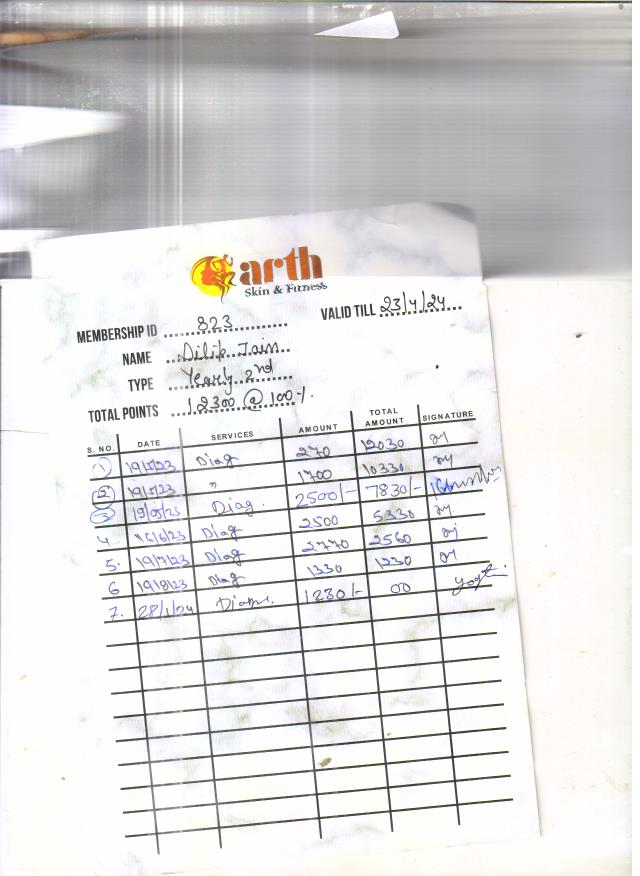 arth
Skin & Fitness
VALID TILL 23/4/24
MEMBERSHIP ID 823
NAME Dilip Jain
TYPE Yearly 2nd
TOTAL POINTS 12300 @ 100%
S. NO DATE SERVICES AMOUNT TOTAL AMOUNT SIGNATURE
1 19/5/23 Diag 270 12030
2 19/5/23 " 1700 10330
3 19/05/23 Diag. 2500/- 7830/-
4 16/6/23 Diag 2500 5330
5. 19/7/23 Diag 2770 2560
6 19/8/23 Diag 1330 1230
7. 28/1/24 1230/- 00